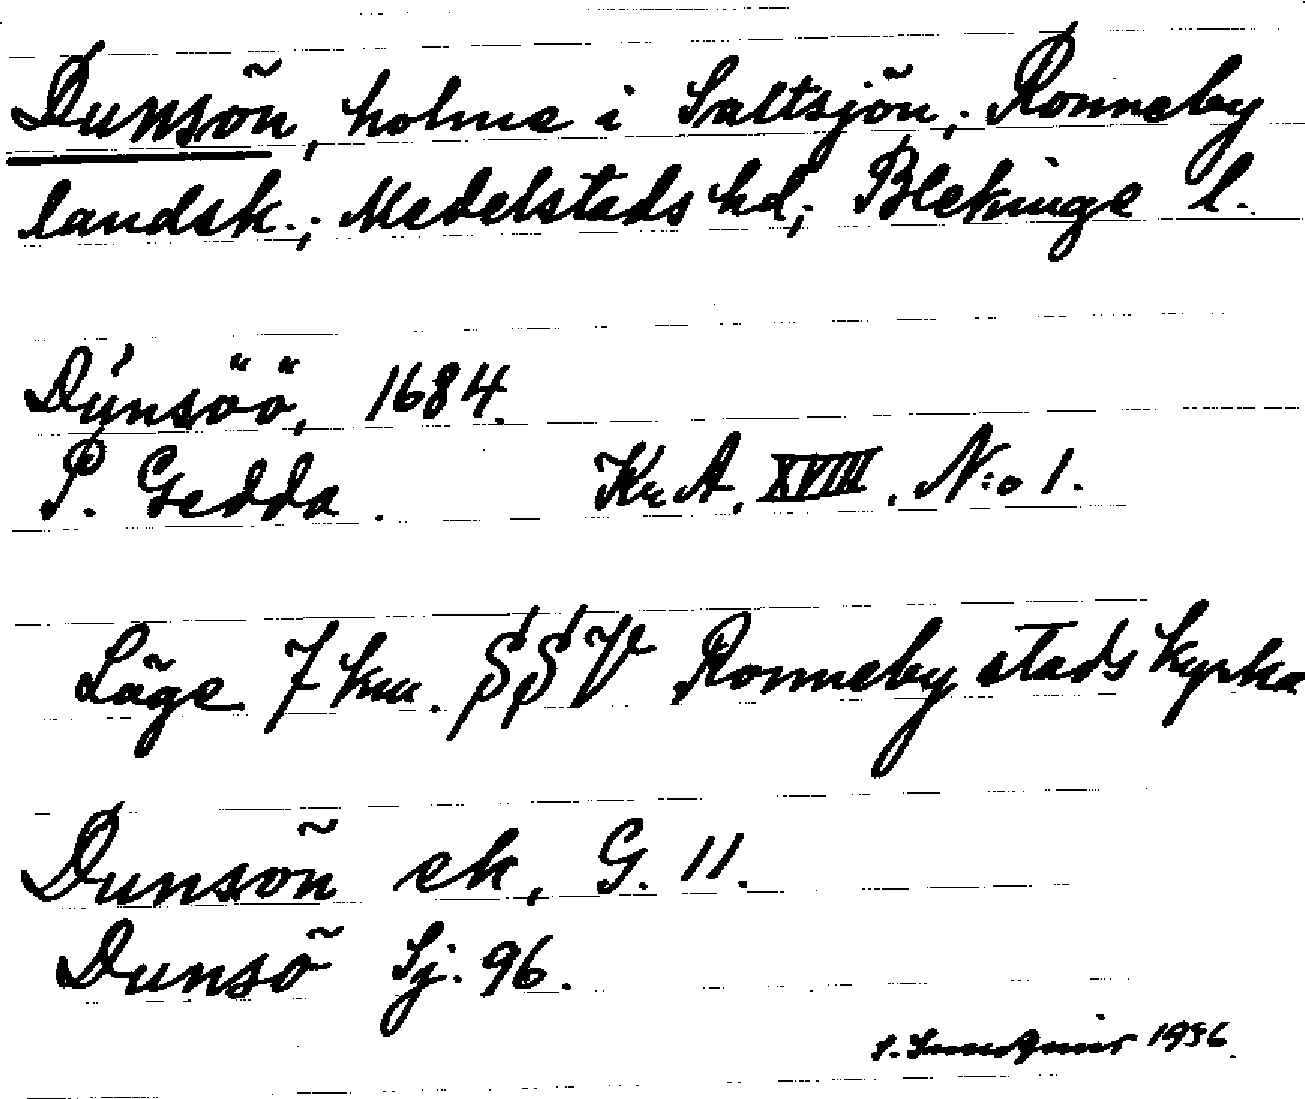 Dunsön, holme i Saltsjön; Ronneby
landsk.; Medelstads hd; Blekinge l.
Dúnsöö, 1684.
P. Gedda. Kr. A. XVIII. N:o 1.
Läge 7 km. SSV Ronneby stads kyrka
Dunsön ek, G. 11.
Dunsö Sj. 96.
Sundqvist 1936.